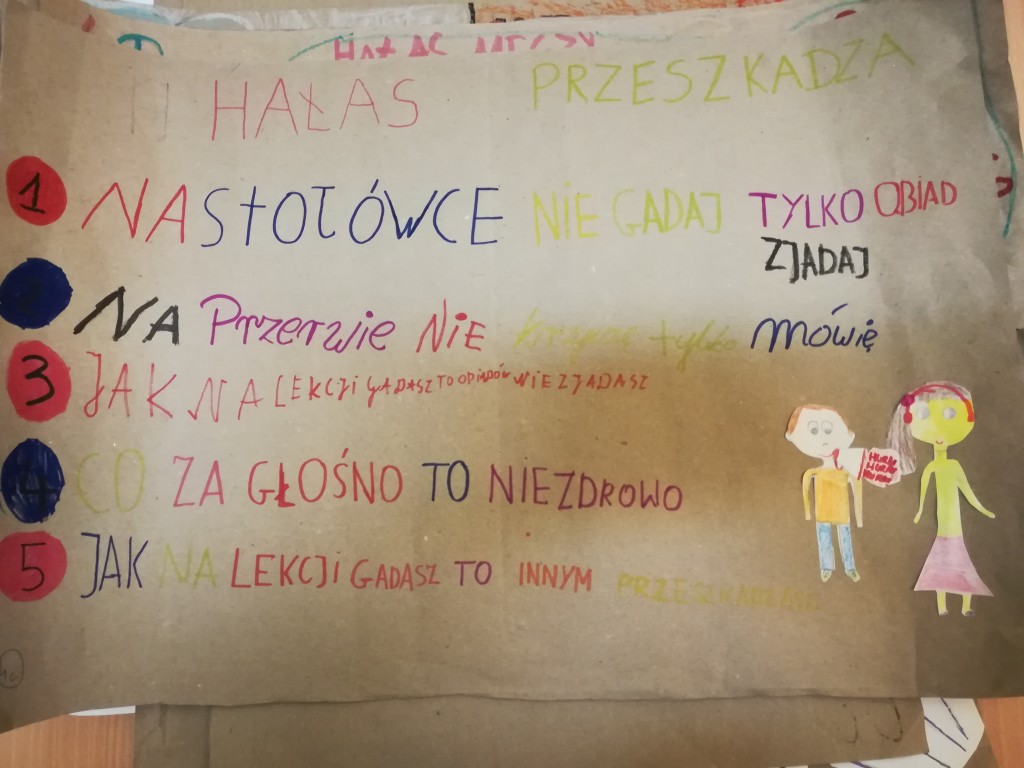 HAŁAS MĘCZY
HAŁAS PRZESZKADZA
1 NA STOŁÓWCE NIE GADAJ TYLKO OBIAD
ZJADAJ
2 NA Przerwie NiE krzyczę tylko mówię
3 JAK NA LEKCJI GADASZ TO OPIADÓW NIE ZJADASZ
4 CO ZA GŁOŚNO TO NIEZDROWO
5 JAK NA LEKCJi GADASZ TO INNYM PRZESZKADZASZ